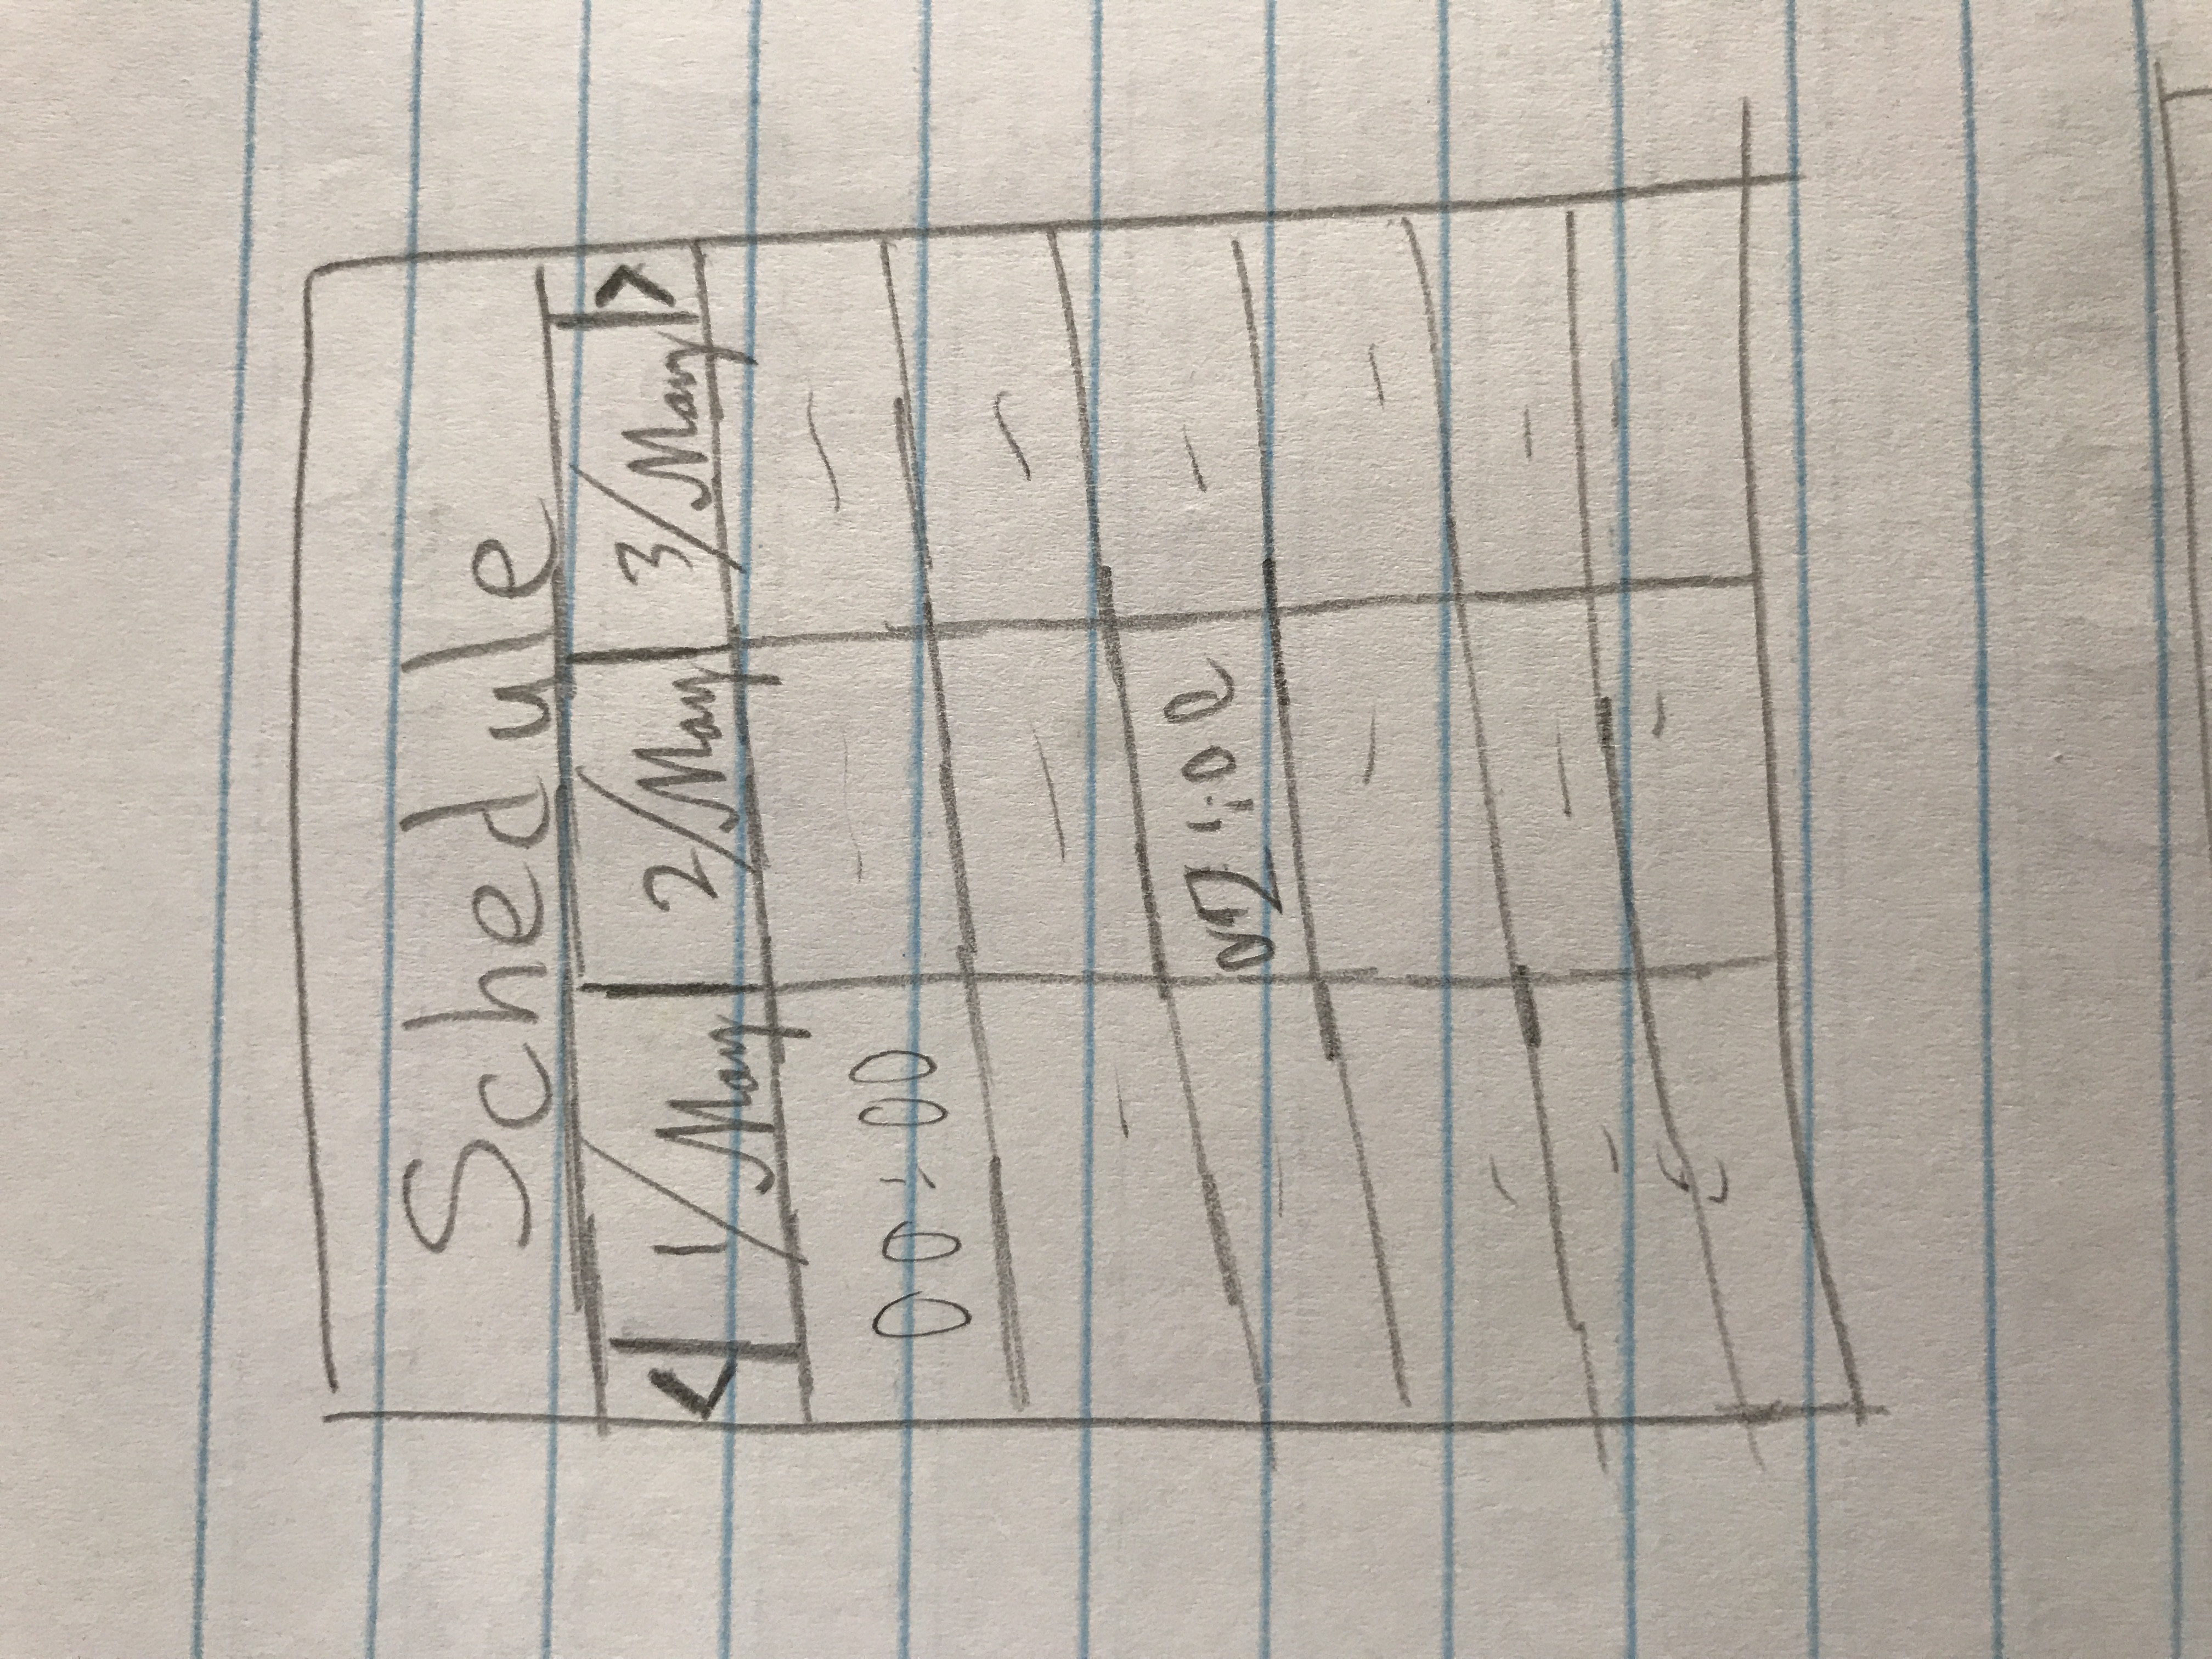 Schedule
< 1/May 2/May 3/May >
00:00
02:00